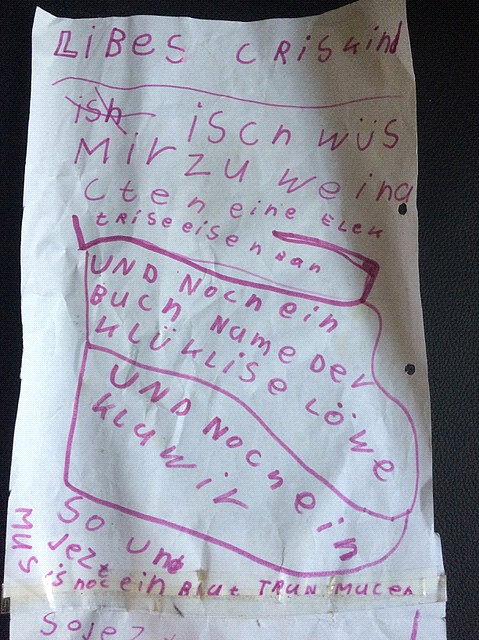 LiBES CRiSKind
ish iSCh WÜS
Mir ZU Weina
Cten eine ELEK
tRiSEeisen Ban
UND Noch ein
BUCH Name Der
KLÜKLiSE LÖWE
UND Noch ein
KLAWIR
So Und
Jezt
MUS is noc ein BLAt TRAN MACEn
SoJEZ